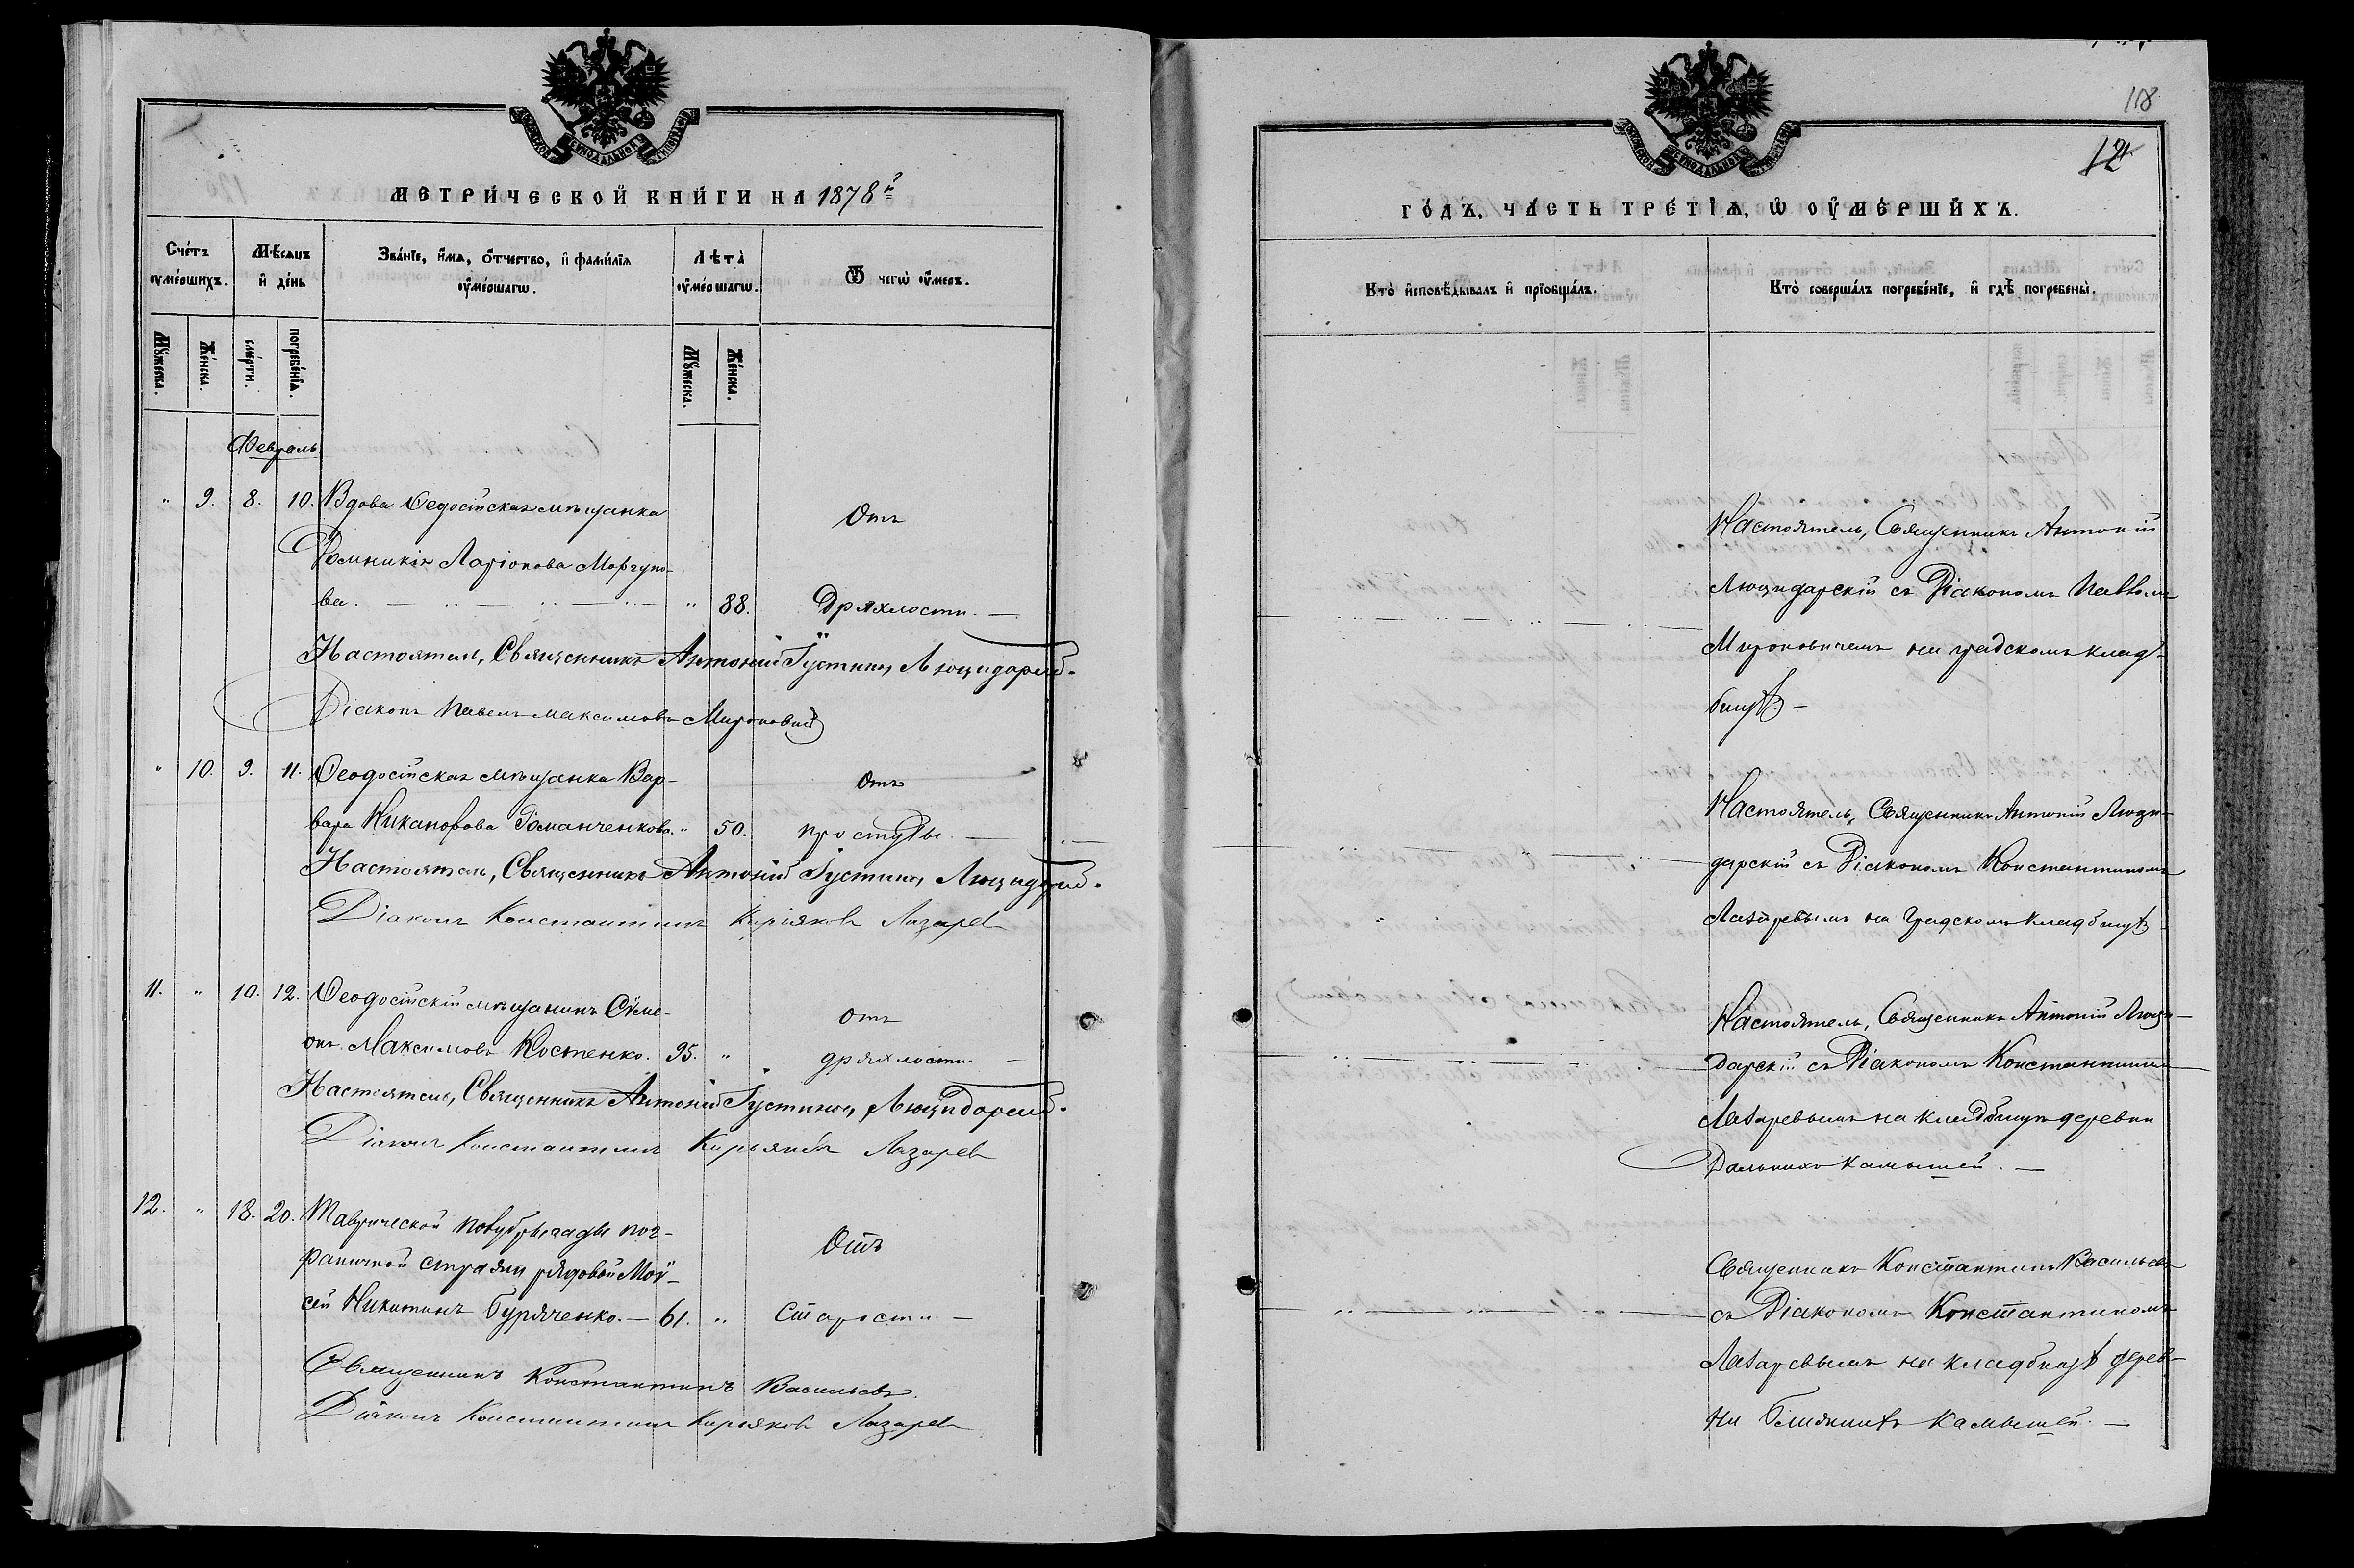 МЕТРИ́ЧЕСКОЙ КНИ́ГИ НА 1878 г.
Сче́тъ ᲂумершихъ.
Мѣсяцъ и де́нь
Зва́нїе, и́мѧ, ѻ҆́тчество, и҆ фами́лїѧ ᲂу҆ме́ршагѡ.
Лѣта̀ ᲂу҆ме́ршагѡ.
Ѿ чегѡ̀ ᲂу҆́меръ.
Мꙋжеска.
Же́нска.
сме́рти.
погребе́нїѧ.
Мꙋжеска.
Же́нска.
Февраль
" 9. 8. 10. Вдова Ѳедосійская мѣщанка Отъ
Домникія Ларіонова Моргуно-
ва. " 88. Дряхлости.
Настоятель, Священникъ Антоній Іустиновъ Люцидарскій.
Діаконъ Павелъ Максимовъ Мироновичъ
" 10. 9. 11. Ѳеодосійская мѣщанка Вар- Отъ
вара Никанорова Романченкова. " 50. простуды.
Настоятель, Священникъ Антоній Іустиновъ Люцидарскій.
Діаконъ Константинъ Киріяковъ Лазаревъ
11. " 10. 12. Ѳеодосійскій мѣщанинъ Сѵме- отъ
онъ Максимовъ Костенко. 95. " дряхлости.
Настоятель, Священникъ Антоній Іустиновъ Люцидарскій.
Діаконъ Константинъ Кирьяковъ Лазаревъ
12. " 18. 20. Таврической Полубригады пог- Отъ
раничной стражи рядовой Мой-
сей Никитинъ Буряченко. 61. " Старости
Священникъ Константинъ Васильевъ.
Діаконъ Константинъ Кирьяковъ Лазаревъ
118
12
ГО́ДЪ, ЧА́СТЬ ТРЕ́ТІѦ, Ѡ ОУ҆МЕ́РШИХЪ.
Кто̀ и҆сповѣ́дывалъ и҆ прїобща́лъ.
Кто̀ соверша́лъ погребе́нїе, и҆ гдѣ̀ погребены̀.
Настоятель, Священникъ Антоній
Люцидарскій съ Діакономъ Павломъ
Мироновичемъ на градскомъ клад-
бищѣ.
Настоятель, Священникъ Антоній Люци-
дарскій съ Діакономъ Константиномъ
Лазаревымъ на Градскомъ кладбищѣ
Настоятель, Священникъ Антоній Люци-
дарскій съ Діакономъ Константиномъ
Лазаревымъ на кладбищѣ деревни
Дальнихъ Камышей.
Священникъ Константинъ Васильевъ
съ Діакономъ Константиномъ
Лазаревымъ на кладбищѣ дерев-
ни Ближнихъ Камышей.